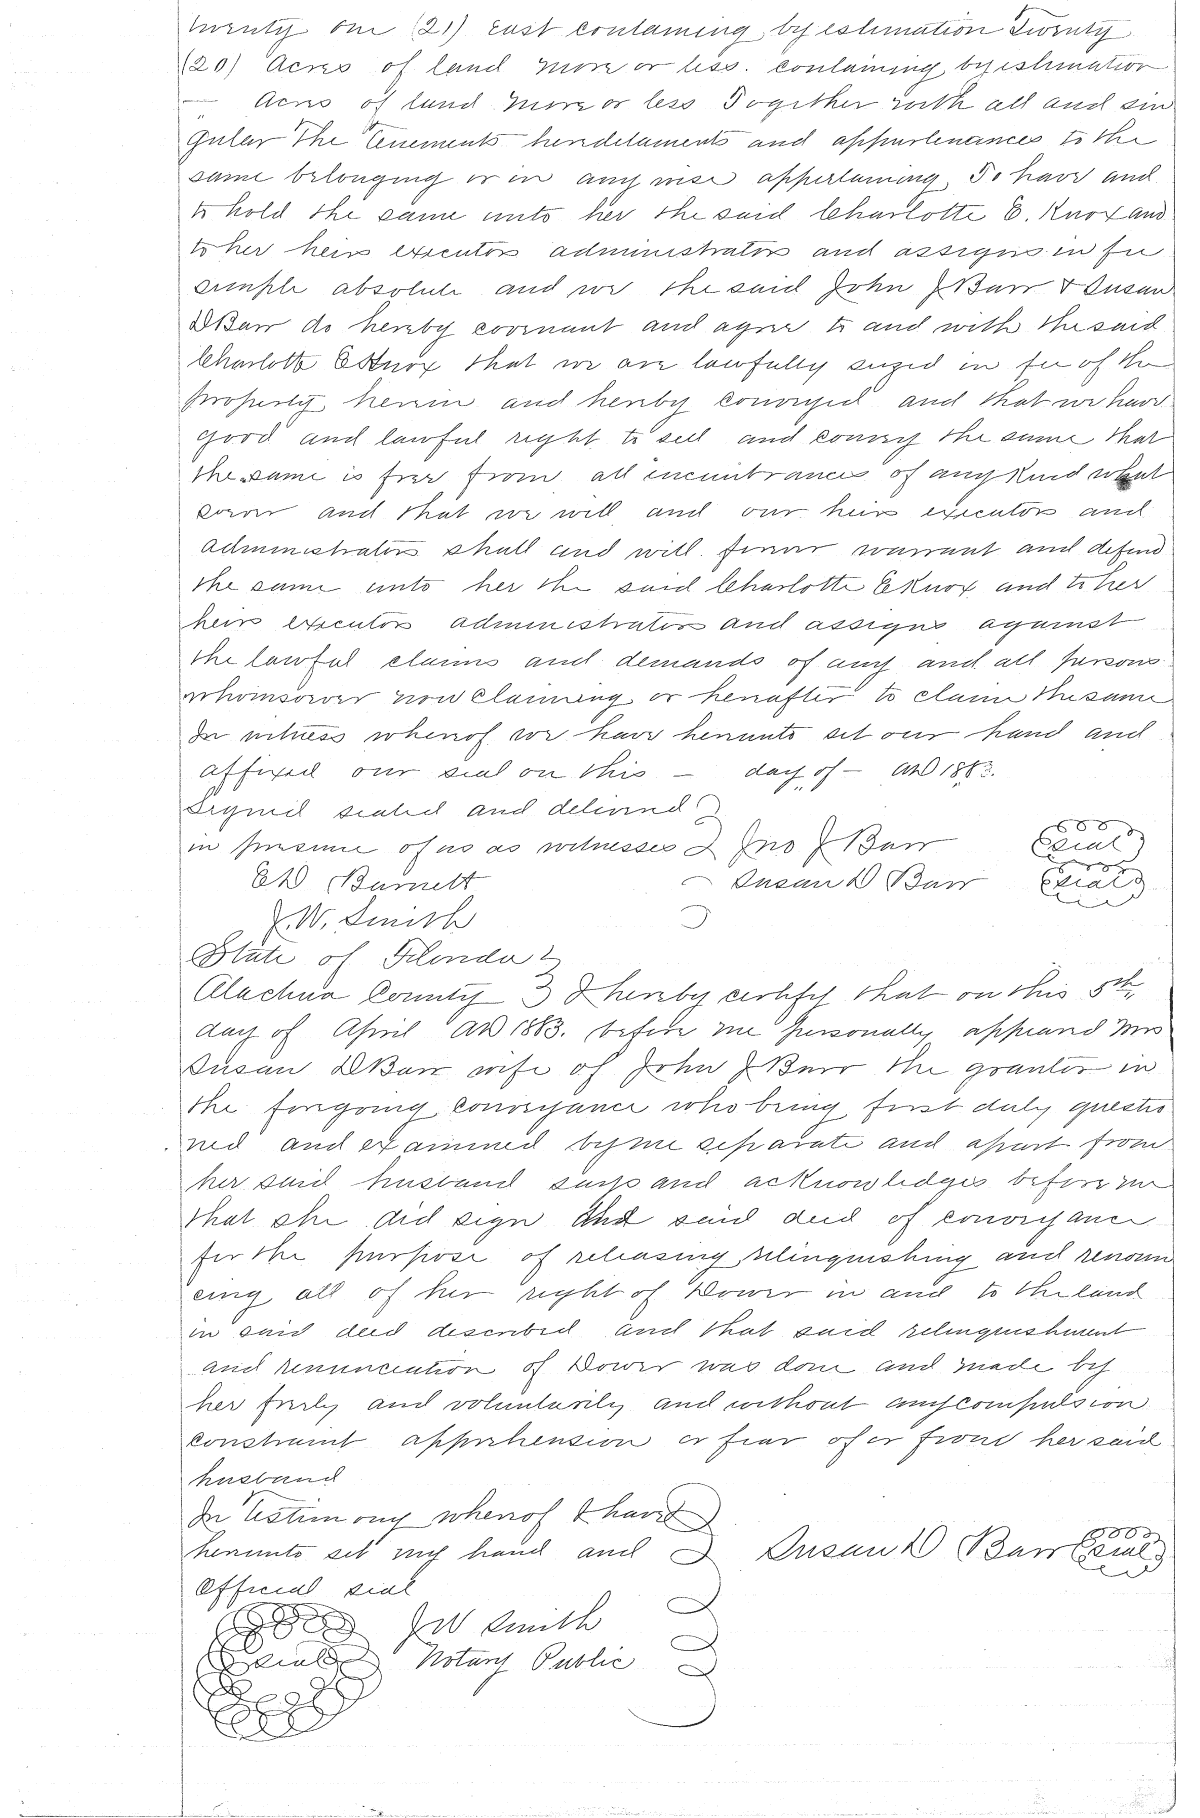 twenty one (21) East containing by estimation Twenty
(20) Acres of land more or less. containing by estimation
— Acres of land more or less Together with all and sin
gular The Tenements heriditaments and appurtenances to the
same belonging or in any wise appertaining, To have and
to hold the same unto her the said Charlotte E. Knox and
to her heirs executors administrators and assigns in fee
simple absolute and we the said John J Barr & Susan
D Barr do hereby covenant and agree to and with the said
Charlotte E Knox that we are lawfully seized in fee of the
property herein and hereby conveyed and that we have
good and lawful right to sell and convey the same that
the same is free from all incumbrances of any Kind what
soever and that we will and our heirs executors and
administrators shall and will forever warrant and defend
the same unto her the said Charlotte E Knox and to her
heirs executors administrators and assigns against
the lawful claims and demands of any and all persons
whomsoever now claiming or hereafter to claim the same
In witness whereof we have hereunto set our hand and
affixed our seal on this — day of — AD 1883.
Signed sealed and delivered
in presence of us as witnesses Jno J Barr (seal)
E W Burnett Susan D Barr (seal)
J. W. Smith
State of Florida
Alachua County I hereby certify that on this 5th
day of April AD 1883. before me personally appeared Mrs
Susan D Barr wife of John J Barr the grantor in
the foregoing conveyance who being first duly questio
ned and examined by me separate and apart from
her said husband says and acknowledges before me
that she did sign and said deed of conveyance
for the purpose of releasing relinquishing and renoun
cing all of her right of Dower in and to the land
in said deed described and that said relinquishment
and renunciation of Dower was done and made by
her freely and voluntarily and without any compulsion
constraint apprehension or fear of or from her said
husband
In Testimony whereof I have
hereunto set my hand and Susan D Barr (seal)
Official seal
J W Smith
(seal) Notary Public